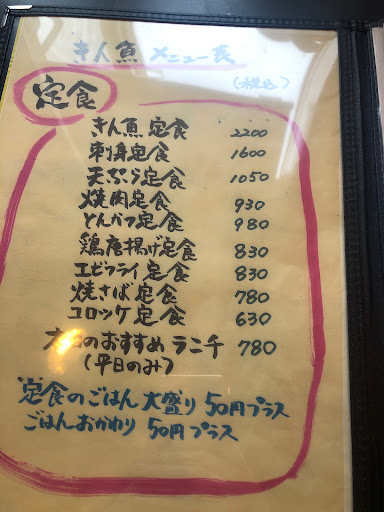 きん魚 メニュー表
(税込)
定食
きん魚定食 2200
刺身定食 1600
天ぷら定食 1050
焼肉定食 930
とんかつ定食 980
鶏唐揚げ定食 830
エビフライ定食 830
焼さば定食 780
コロッケ定食 630
のおすすめランチ 780
(平日のみ)
定食のごはん大盛り 50円プラス
ごはんおかわり 50円プラス